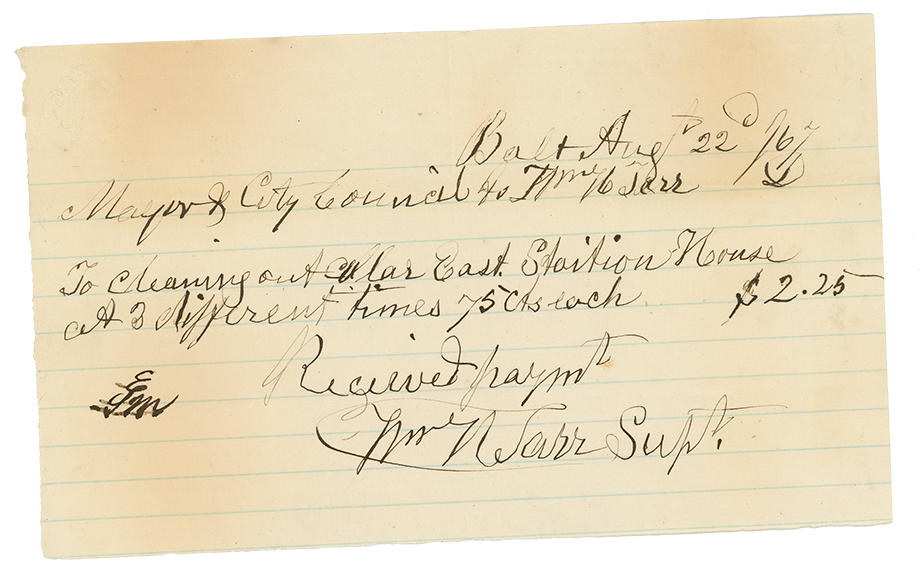 Balt Aug 22d /67
Mayor & City Council to Wm H Tarr Dr
To cleaning out cellar East. Staition House
At 3 different times 75 cts each $2.25
Received paymt
Wm H Tarr Supt.